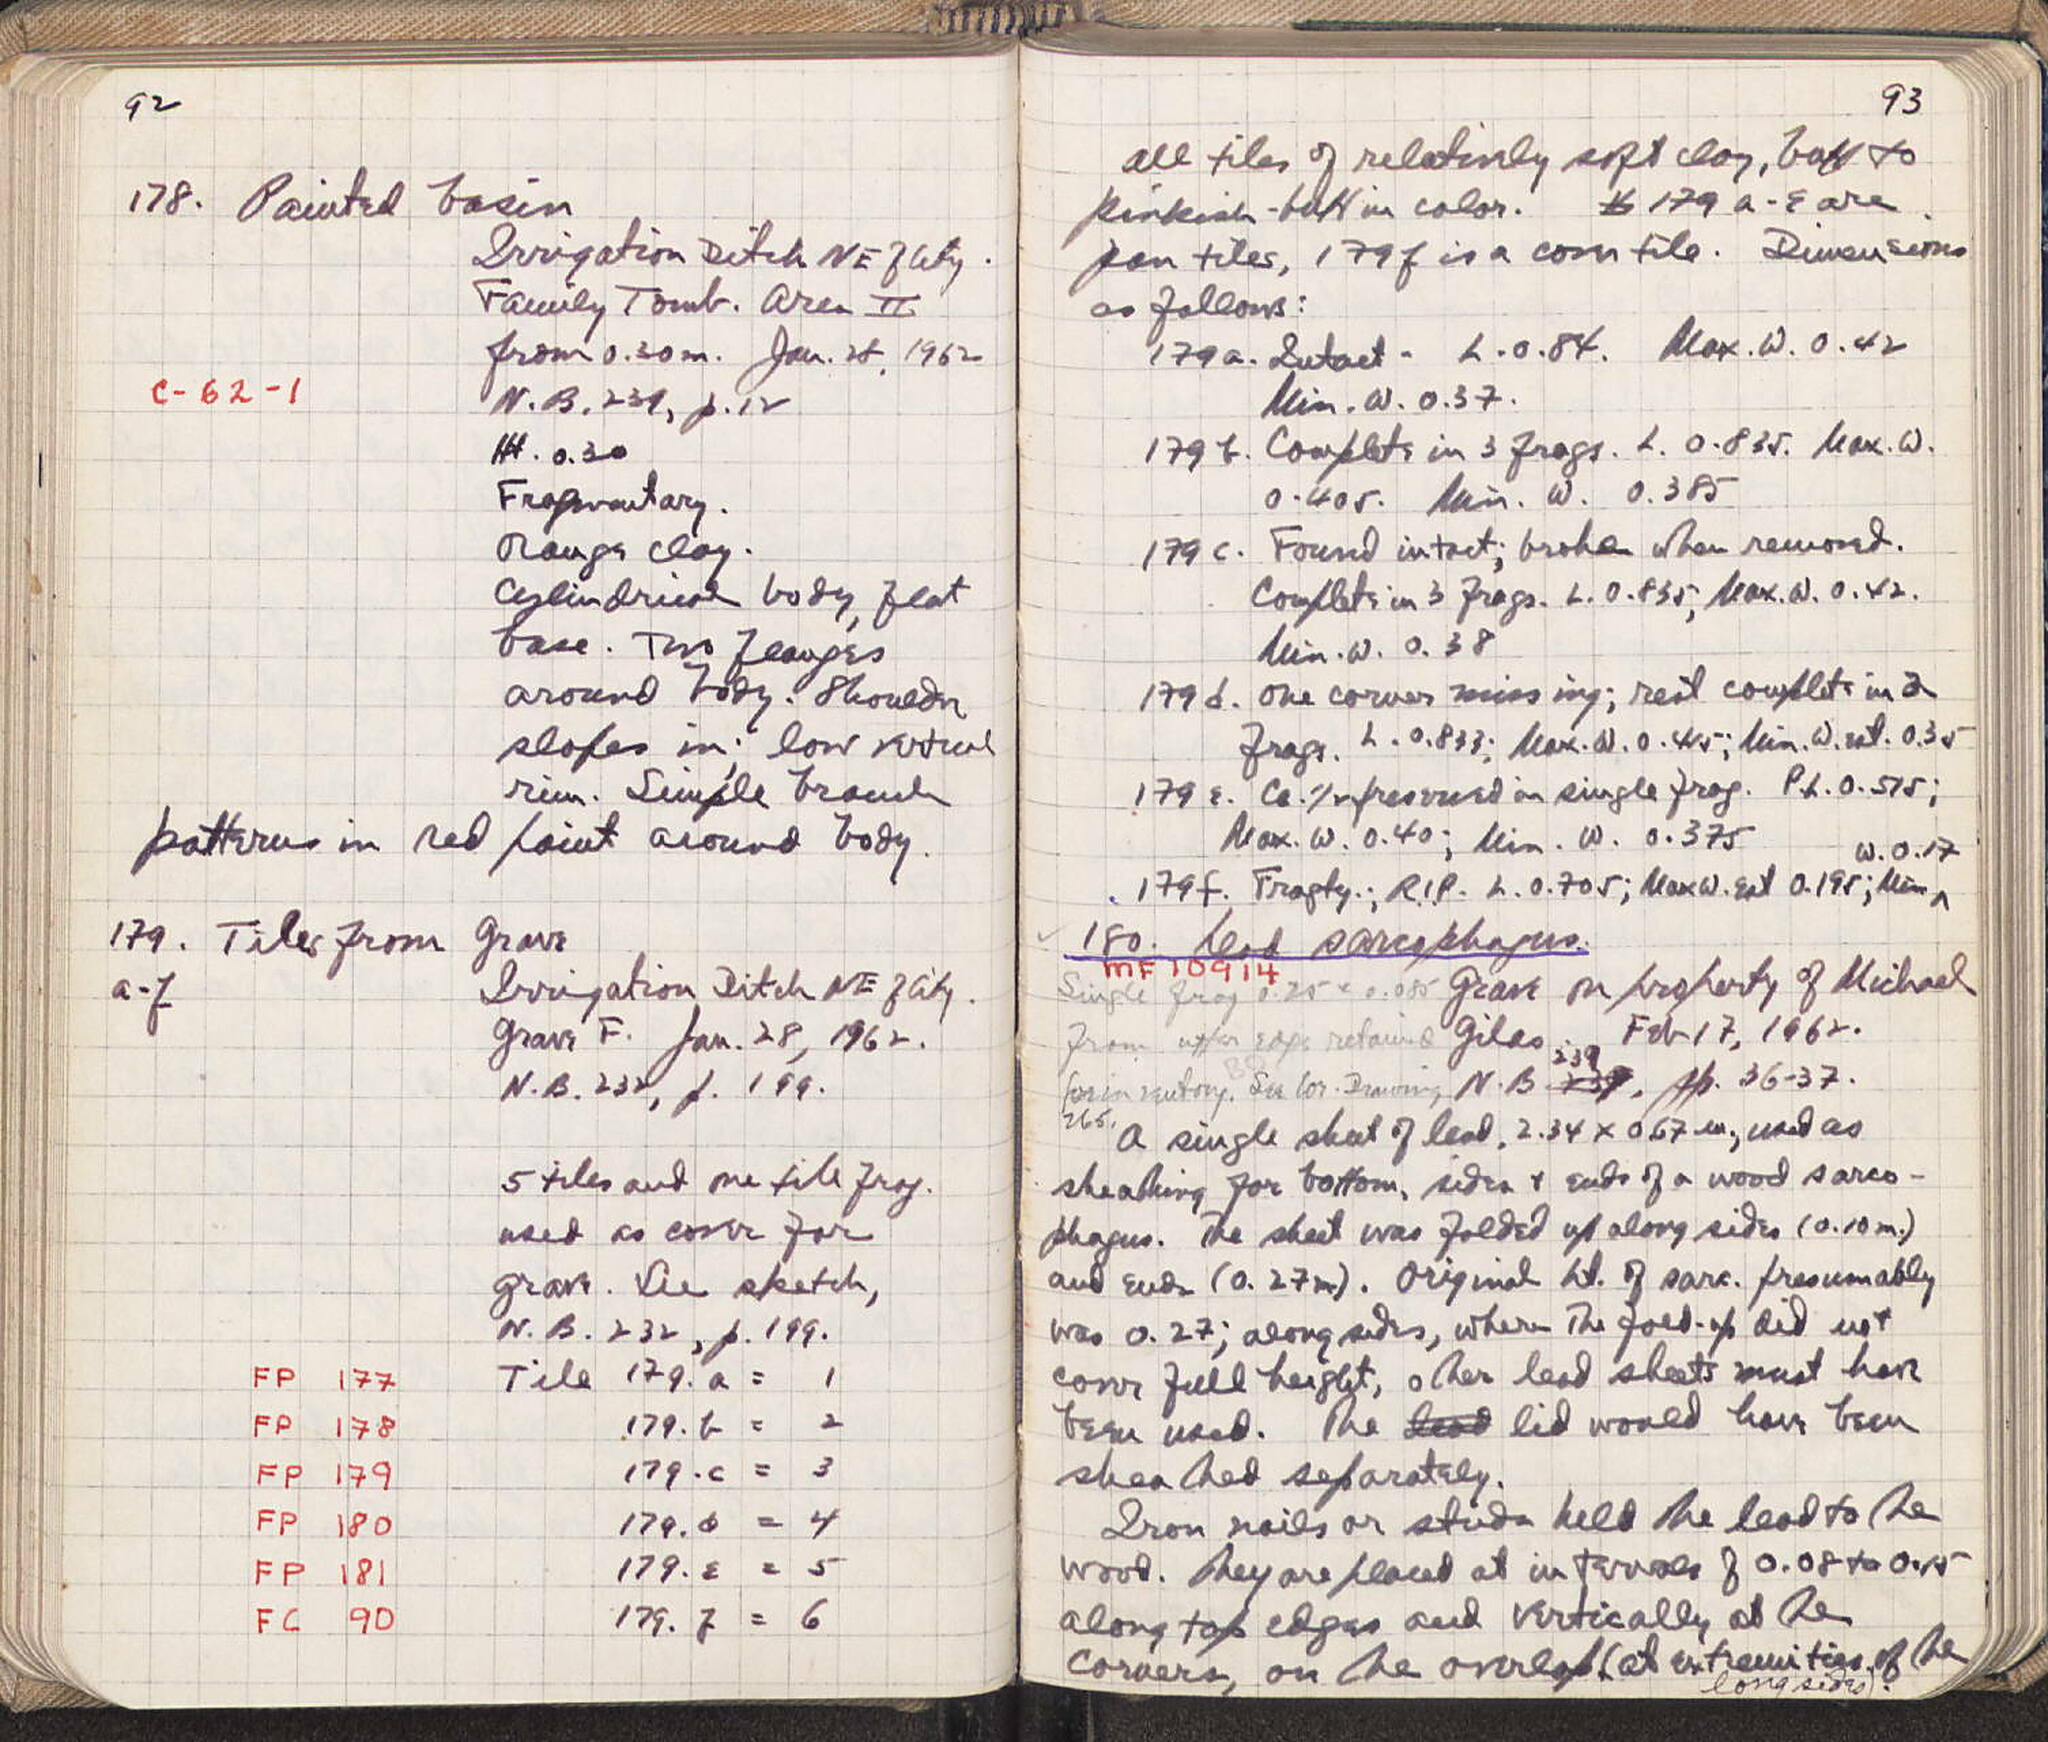 92
178. Painted basin
Irrigation Ditch NE of City.
Family Tomb. Area II
from 0.30 m. Jan. 28, 1962
C-62-1
N.B. 239, p. 12
Ht. 0.30
Fragmentary.
Orange clay.
Cylindrical body, flat
base. Two flanges
around body. Shoulder
slopes in; low vertical
rim. Simple branch
patterns in red paint around body.
179. Tiles from Grave
a-f
Irrigation Ditch NE of City.
Grave F. Jan. 28, 1962.
N.B. 232, p. 199.
5 tiles and one tile frag.
used as cover for
grave. See sketch,
N.B. 232, p. 199.
FP 177 Tile 179.a = 1
FP 178 179.b = 2
FP 179 179.c = 3
FP 180 179.d = 4
FP 181 179.e = 5
FC 90 179.f = 6
93
All tiles of relatively soft clay, buff to
pinkish-buff in color. 179 a-e are
pan tiles, 179 f is a cover tile. Dimensions
as follows:
179a. Intact - L. 0.84. Max. W. 0.42
Min. W. 0.37.
179 b. Complete in 3 frags. L. 0.835. Max. W.
0.405. Min. W. 0.385
179 c. Found intact; broken when removed.
Complete in 3 frags. L. 0.835, Max. W. 0.42.
Min. W. 0.38
179 d. One corner missing; rest complete in 2
frags. L. 0.833; Max. W. 0.45; Min. W. est. 0.35
179 e. Ca. 1/2 preserved in single frag. P.L. 0.515;
Max. W. 0.40; Min. W. 0.375
W. 0.17
179f. Fragty.; R.I.P. L. 0.705; Max W. est 0.195; Min ^
180. Lead sarcophagus.
MF 10914
Single frag 0.25 x 0.085
from upper edge retained
for inventory. See Cor. Drawing
265.
Grave on property of Michael
Gilas. Feb 17, 1962.
N.B 239, pp. 36-37.
A single sheet of lead, 2.34 x 0.67 m., used as
sheathing for bottom, sides + ends of a wood sarco-
phagus. The sheet was folded up along sides (0.10 m.)
and ends (0.27 m). Original ht. of sarc. presumably
was 0.27; along sides, where the fold-up did not
cover full height, other lead sheets must have
been used. The lead lid would have been
sheathed separately.
Iron nails or studs held the lead to the
wood. They are placed at intervals of 0.08 to 0.15
along top edges and vertically at the
corners, on the overlap (at extremities of the
long sides).